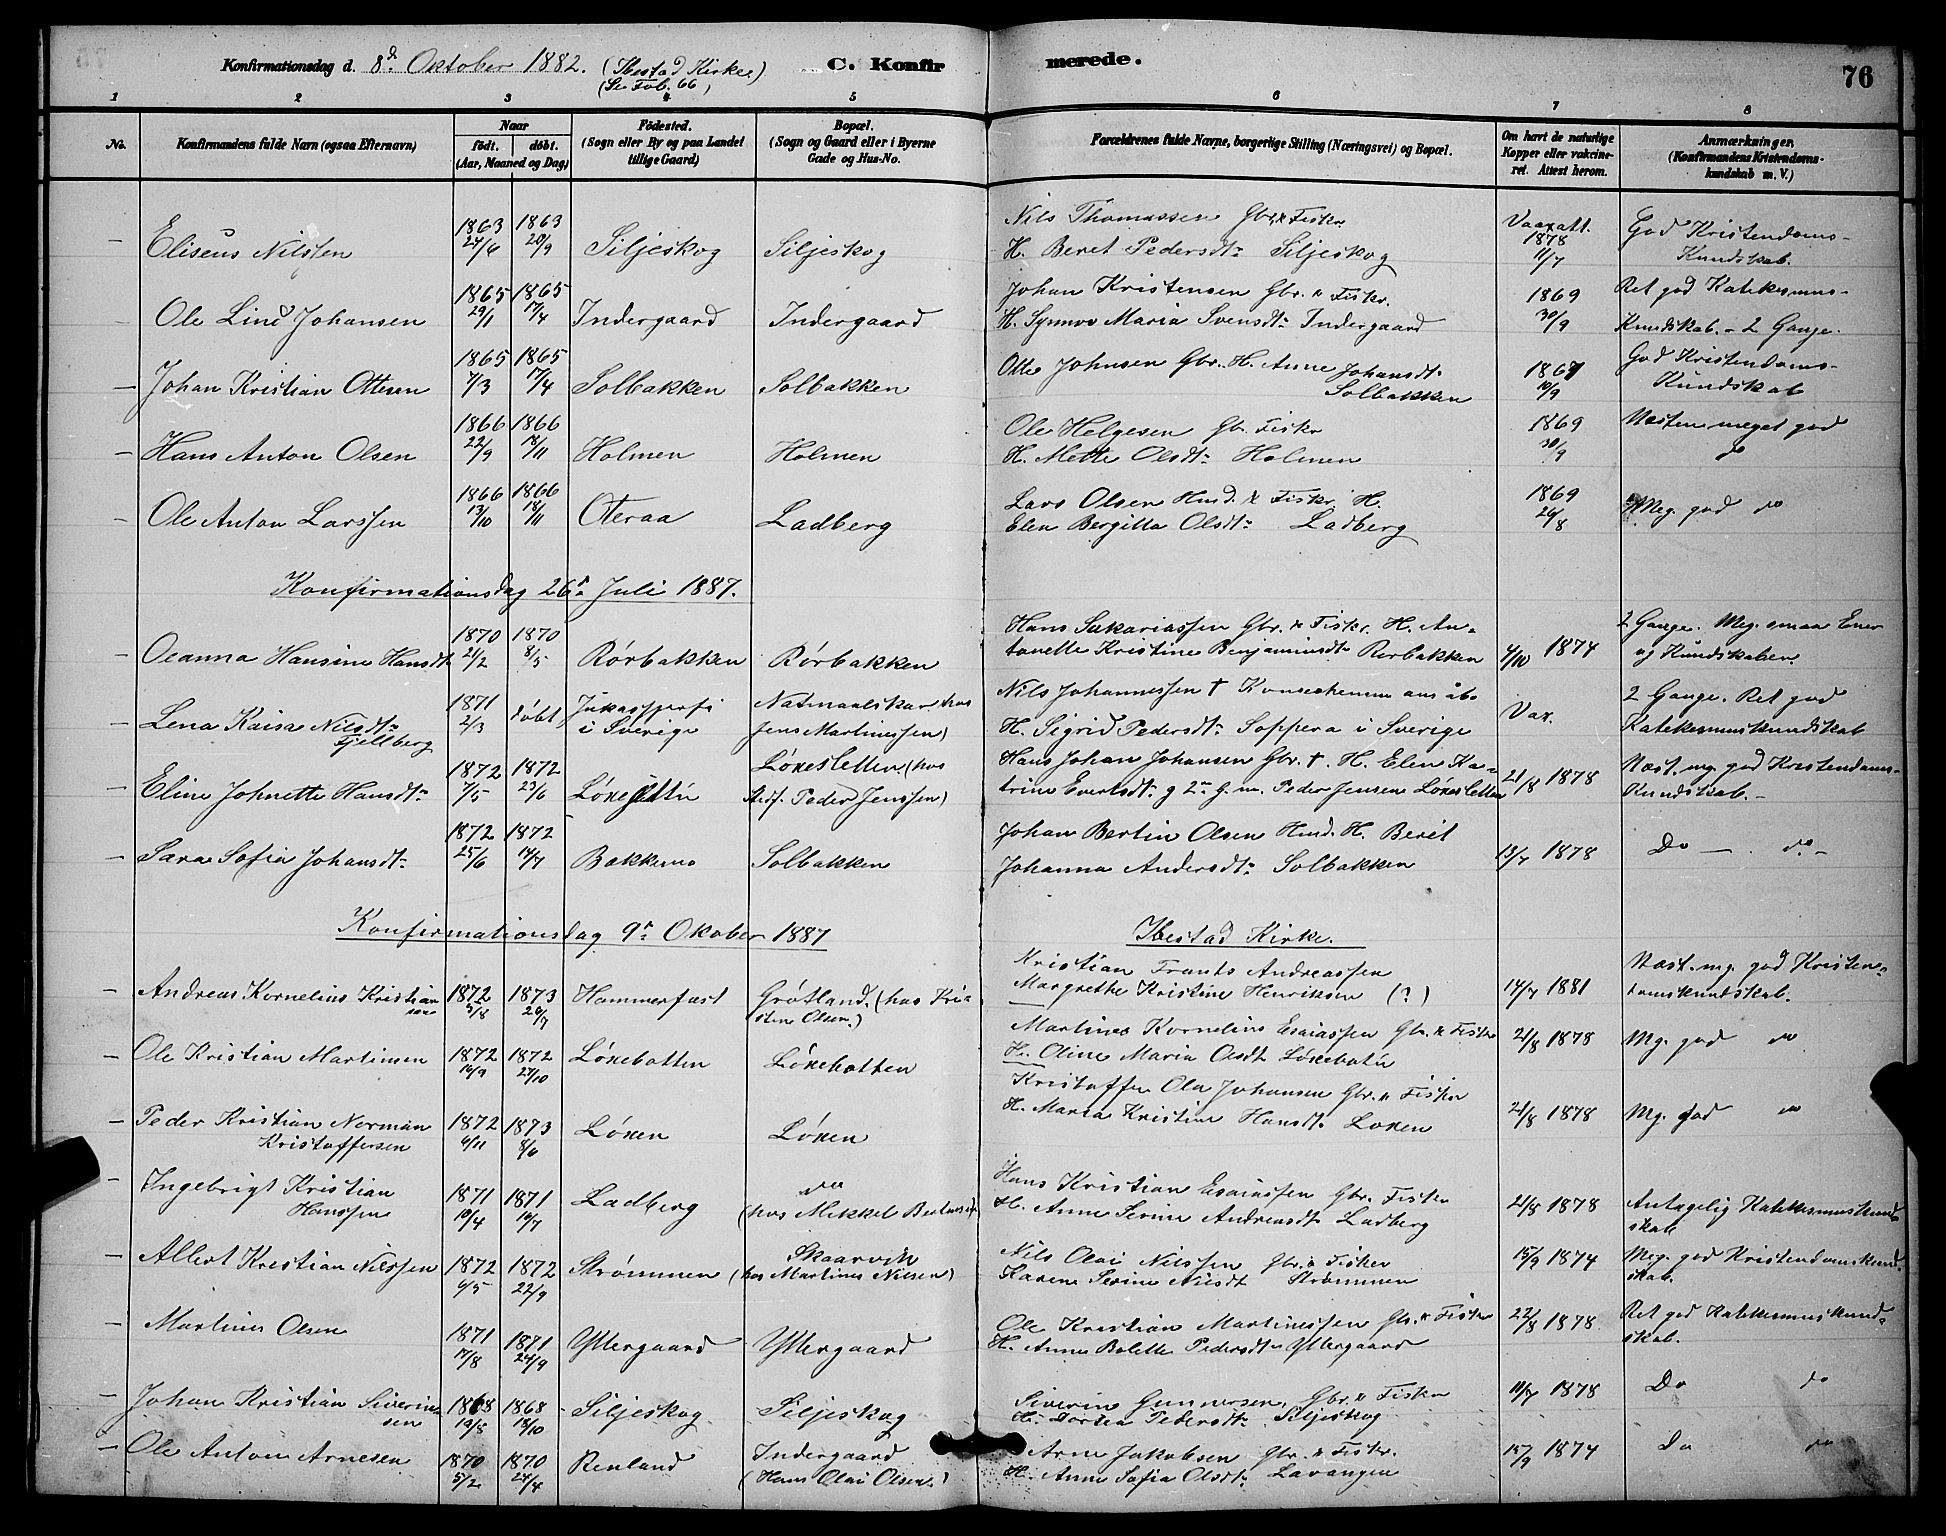 Konfirmationsdag d. 8de Oktober 1882. (Ibestad Kirke)
(Se Fol. 66)
C. Konfirmerede.
76
1 2 3 4 5 6 7 8
No.
Konfirmandens fulde Navn (ogsaa Efternavn)
Naar
födt. döbt.
(Aar, Maaned og Dag)
Födested.
(Sogn eller By og paa Landet
tillige Gaard)
Bopæl.
(Sogn og Gaard eller i Byerne
Gade og Hus-No.
Forældrenes fulde Navne, borgerlige Stilling (Næringsvei) og Bopæl.
Om havt de naturlige
Kopper eller vakcine-
ret. Attest herom.
Anmærkninger.
(Konfirmandens Kristendoms-
kundskab m. V.)
– Eliseus Nilssen 1863 24/6 1863 20/9 Siljeskog Siljeskog
Nils Thomassen Gbr. & Fisker
H. Beret Pedersdtr Siljeskog
Vacc.att. 1878 11/7
God Kristendoms-
Kundskab.
– Ole Lind Johansen 1865 29/1 1865 17/4 Indergaard Indergaard
Johan Kristensen Gbr. & Fisker.
H. Synnov Maria Svensdtr Indergaard
1869 30/9
Ret god Katekesmus-
Kundskab. – 2 Gange.
– Johan Kristian Ottesen 1865 7/3 1865 17/4 Solbakken Solbakken
Otte Johnsen Gbr. H. Anne Johansdtr
Solbakken
1867 10/9
God Kristendoms-
Kundskab
– Hans Anton Olsen 1866 22/9 1866 18/11 Holmen Holmen
Ole Helgesen Gb. Fiskr
H. Mette Olsdtr Holmen
1869 30/9
Næsten meget god
do
– Ole Anton Larssen 1866 13/10 1866 18/11 Oteraa Ladberg
Lars Olsen Husm. & Fiskr H.
Elen Bergitta Olsdtr Ladberg
1869 26/8
Meg. god do
Konfirmationsdag 26de Juli 1887.
– Oeanna Hansine Hansdtr 1870 21/2 1870 8/5 Rörbakken Rörbakken
Hans Sakariassen Gbr. & Fiskr. H. An-
tonette Kristine Benjaminsdtr Rørbakken
4/10 1874
2 Gange. Meg. smaa Evner
og Kundskaber.
– Lena Kaisa Nilsdtr
Fjellberg
1871 2/3 döbt Jukasjærfi
i Sverige
Natmaalskar hos
Jens Martinessen)
Nils Johannessen †
H. Sigrid Pedersdtr Soppera i Sverige
Vax.
2 Gange. Ret god
Katekesmuskundskab
– Eline Johnette Hansdtr 1872 7/5 1872 23/6 Löxesletten
Löxesletten (hos
Stedf. Peder Jenssen)
Hans Johan Johansen Gbr. †. H. Elen Ka-
trine Evertsdtr g 2n g. m. Peder Jensen Löxesletten
21/8 1878
Næst. mg. god Kristendoms-
Kundskab. –
– Sara Sofia Johansdtr 1872 25/6 1872 14/7 Bakkemo Solbakken
Johan Bertin Olsen Husm. H. Berit
Johanna Andersdtr Solbakken
13/7 1878
Do –. do –
Konfirmationsdag 9de Okober 1887 Ibestad Kirke.
– Andreas Kornelius Kristian
sen
1872 5/8 1873 20/7 Hammerfæst
Grötland. (hos Kri-
stine Olsen.)
Kristian Frants Andreassen
Margrethe Kristine Henriksen (?)
14/7 1881
Næst. mg. god Kristen-
domskundskab.
– Ole Kristian Martinsen 1872 14/9 1872 27/10 Löxebotten Löxebotten
Martines Kornelius Esaiassen Gbr. & Fisker
H. Oline Maria Olsdt Löxebotn
21/8 1878
Mg. god do
– Peder Kristian Norman
Kristoffersen
1872 6/11 1873 8/6 Löxen Löxen
Kristoffer Ola Johansen Gbr. & Fisker
H. Maria Kristine Hansdtr Loxen
21/8 1878
Mg. god do
– Ingebrigt Kristian
Hanssen
1871 10/4 1871 16/7 Ladberg
do
(hos Mikkel Berteussen
Hans Kristian Esaiassen Gbr. Fisker
H. Anne Serine Andreasdtr Ladberg
21/8 1878
Antagelig Katekesmuskund
skab
– Albert Kristian Nilssen 1872 6/5 1872 22/9 Strömmen
Skaarvik
(hos Martines Nilsen)
Nils Olai Nilssen Gbr. & Fisker
Karen Serine Nilsdt Strömmen
15/9 1874
Meg. god Kristendomskund-
skab.
– Martines Olsen 1871 7/8 1871 24/9 Yttergaard Yttergaard
Ole Kristian Martinessen Gb. & Fisker
H. Anne Bolette Pedersdtr Yttergaard
22/8 1878
Ret god Katekesmuskund-
skab.
– Johan Kristian Siverin-
sen
1868 19/8 1868 18/10 Siljeskog Siljeskog
Siverin Gunnersen, Gbr. & Fisker
H. Dortea Pedersdtr Siljeskog
11/7 1878
Do do
– Ole Anton Arnesen 1870 5/2 1870 24/4 Renland
Indergaard
(Hans Olai Olsen.)
Arne Jakobsen Gbr. & Fiskr.
H. Anne Sofia Olsdtr Lavangen
15/9 1874
Do do